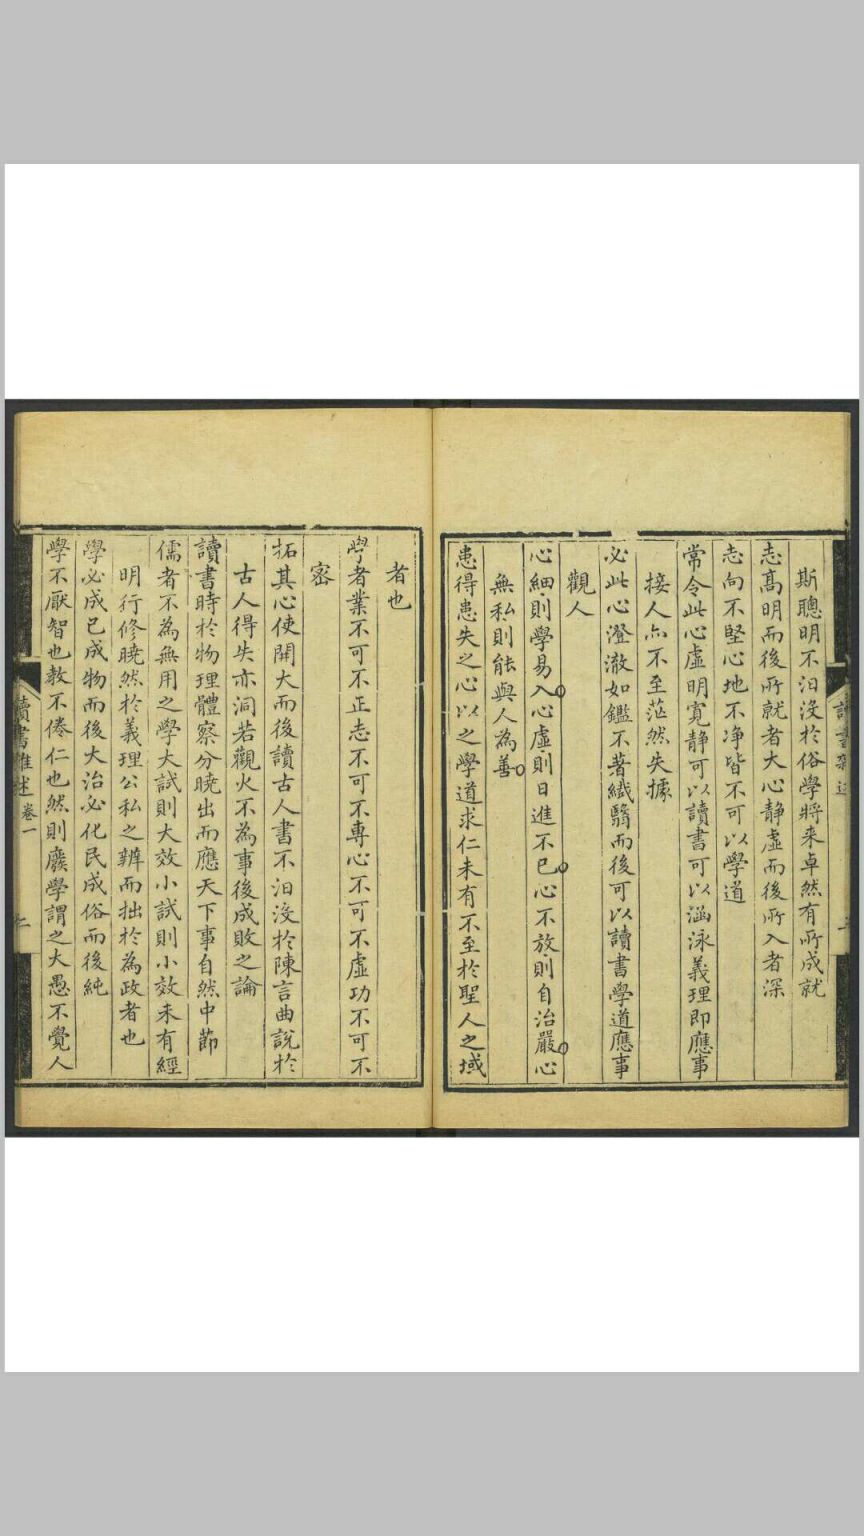 斯聰明不汨沒於俗學將来卓然有所成就
志髙明而後所就者大心靜虛而後所入者深
志向不堅心地不净皆不可以學道
常令此心虛明寛靜可以讀書可以涵泳義理即應事
接人亦不至茫然失據
必此心澄澈如鑑不著纎翳而後可以讀書學道應事
觀人
心細則學易入心虛則日進不已心不放則自治嚴心
無私則能與人為善
患得患失之心以之學道求仁未有不至於聖人之域
者也
學者業不可不正志不可不專心不可不虛功不可不
密
拓其心使開大而後讀古人書不汨沒於陳言曲説於
古人得失亦洞若觀火不為事後成敗之論
讀書時於物理體察分曉出而應天下事自然中節
儒者不為無用之學大試則大效小試則小效未有經
明行修曉然於義理公私之辨而拙於為政者也
學必成已成物而後大治必化民成俗而後純
學不厭智也教不倦仁也然則廢學謂之大愚不覺人
讀書雜述 卷一